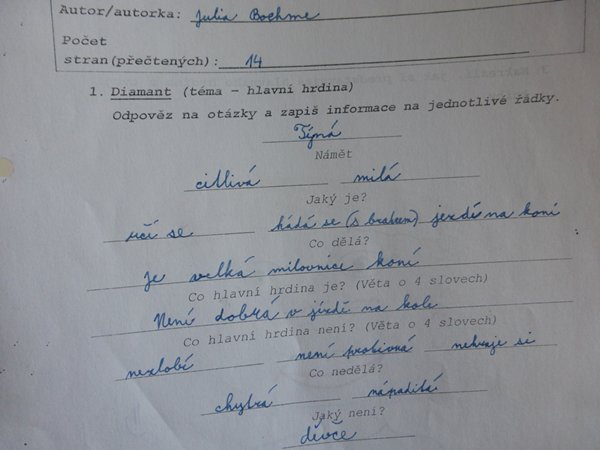 Autor/autorka: Julia Boehme
Počet
stran(přečtených): 14
1. Diamant (téma - hlavní hrdina)
Odpověz na otázky a zapiš informace na jednotlivé řádky.
Týna
Námět
citlivá milá
Jaký je?
učí se hádá se (s bratrem) jezdí na koni
Co dělá?
je velká milovnice koní
Co hlavní hrdina je? (Věta o 4 slovech)
Není dobrá v jízdě na kole
Co hlavní hrdina není? (Věta o 4 slovech)
nezlobí není protivná nehraje si
Co nedělá?
chytrá nápaditá
Jaký není?
děvče